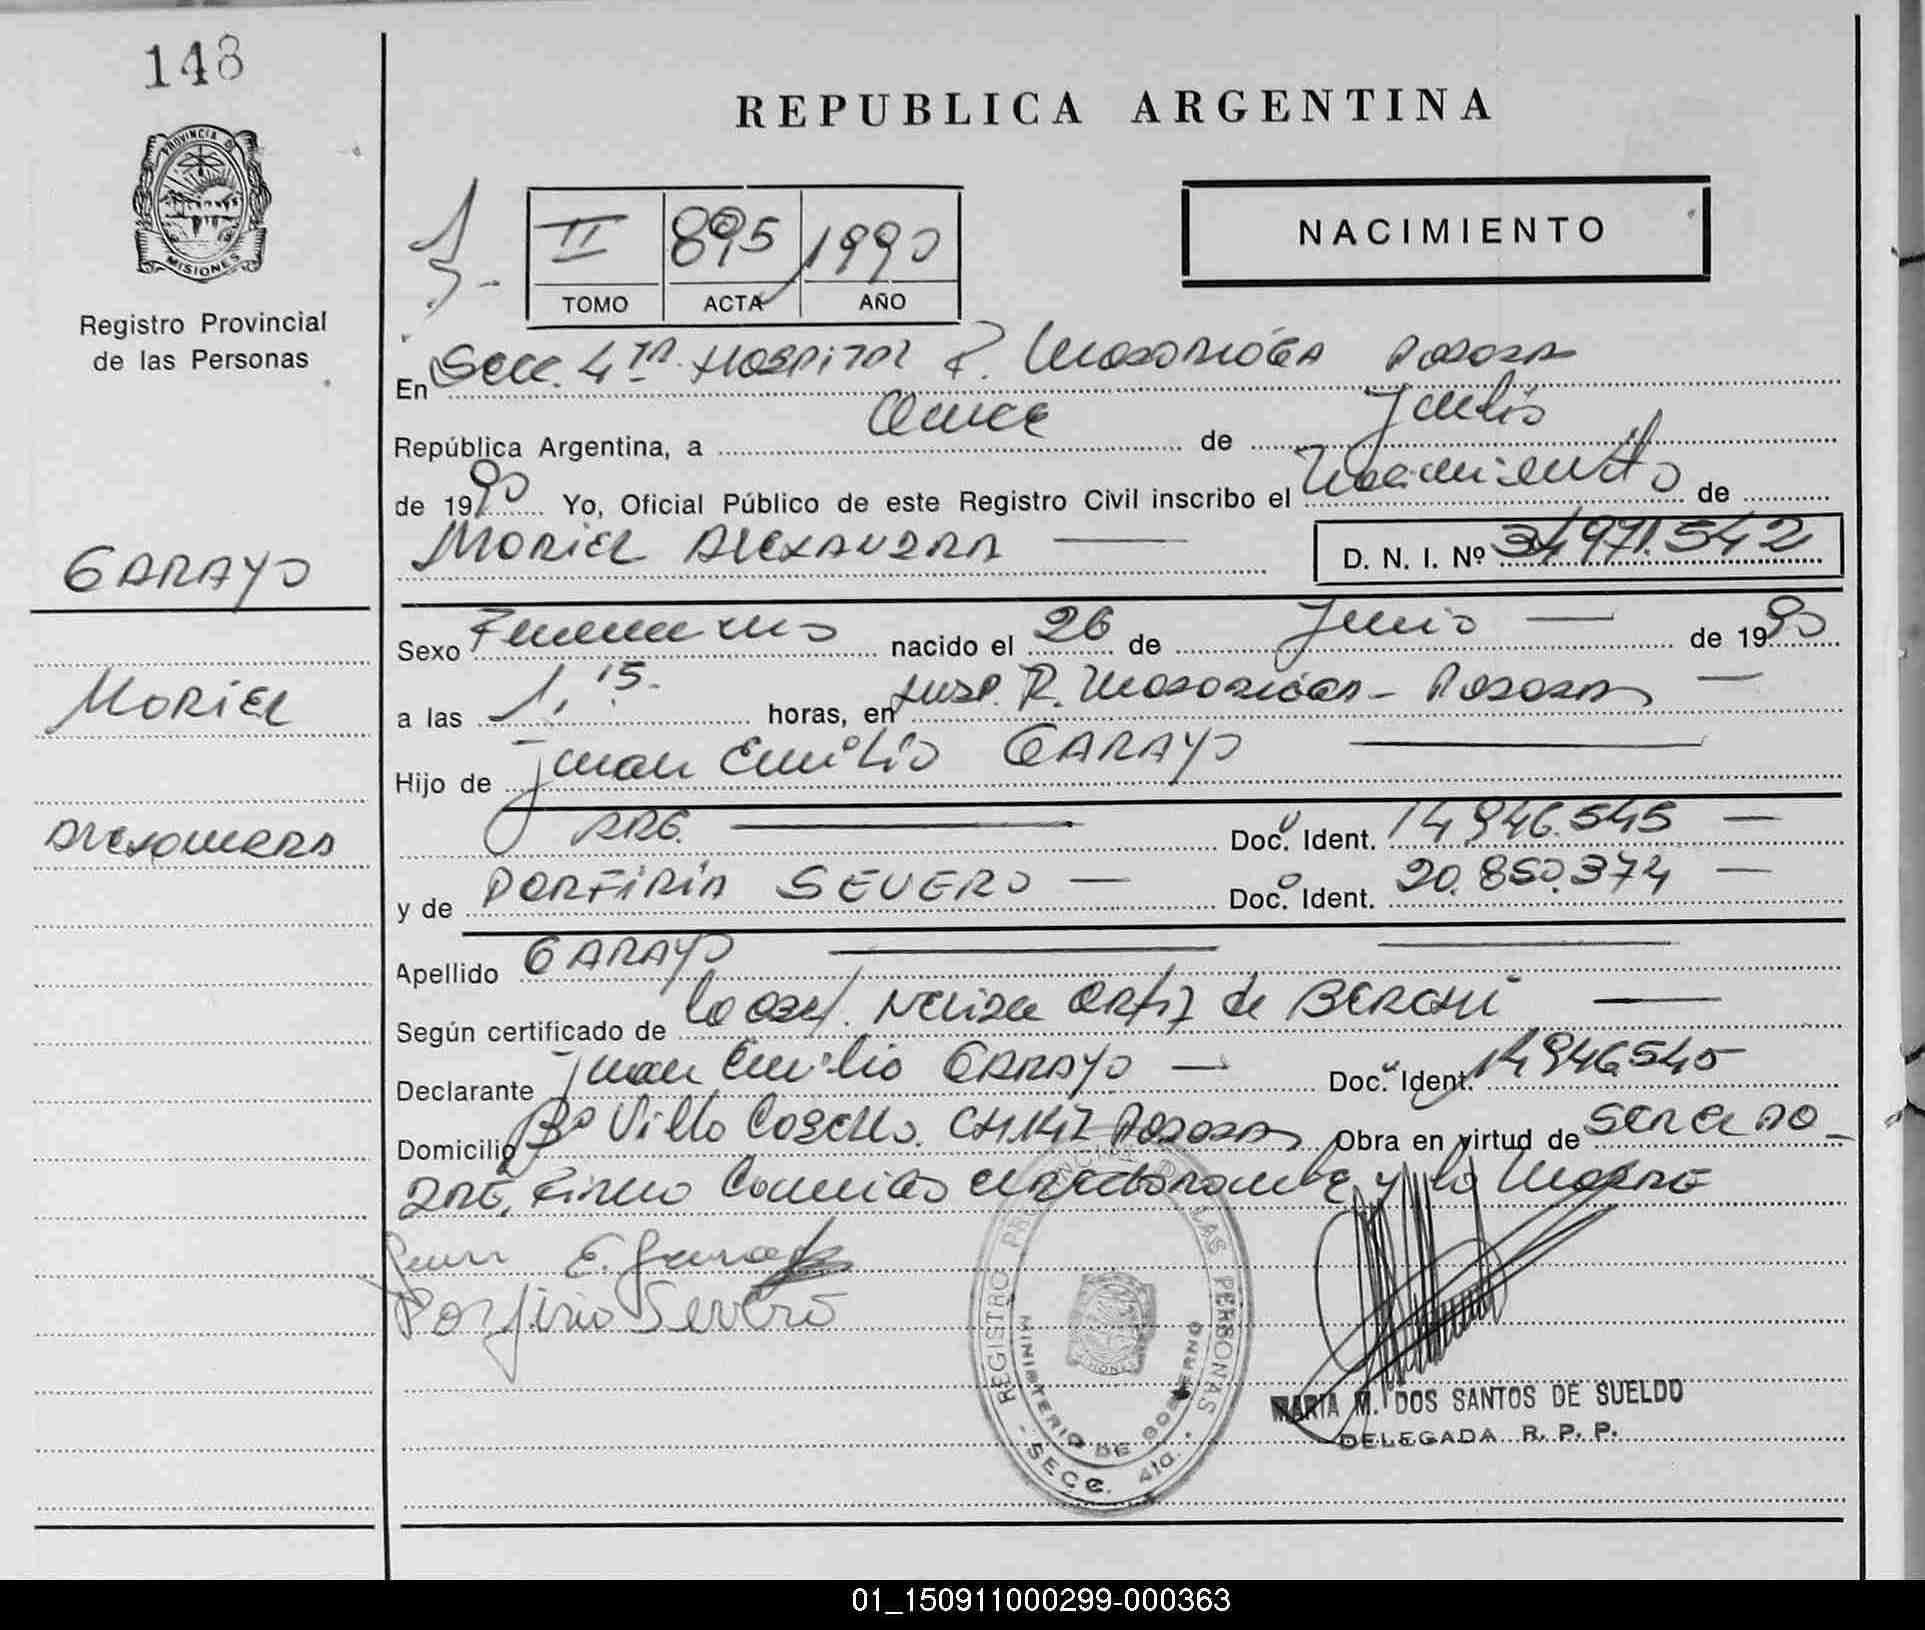 148
REPUBLICA ARGENTINA
PROVINCIA DE
MISIONES
Registro Provincial
de las Personas
II 895 1990
TOMO ACTA AÑO
NACIMIENTO
En Secc. 4ta. Hospital R. Madariaga Posadas
República Argentina, a Once de Julio
de 1990 Yo, Oficial Público de este Registro Civil inscribo el Nacimiento de
MARIEL ALEXANDRA D. N. I. Nº 34971.542
GARAYO
Sexo Femenino nacido el 26 de Junio de 1990
MARIEL
a las 1,15. horas, en Hosp. R. Madariaga - Posadas
Hijo de Juan Emilio GARAYO
ALEXANDRA
ARG. Doc. Ident. 14.946.545
y de PORFIRIA SEVERO Doc. Ident. 20.850.374
Apellido GARAYO
Según certificado de la Obst. Nelida Ortiz de BERCHI
Declarante Juan Emilio GARAYO Doc. Ident. 14946545
Domicilio Bº Villa Posadas Obra en virtud de SER EL PA-
DRE, Firma Conmigo el declarante y la MADRE
Juan E. Garayo
Porfiria Severo
REGISTRO PROVINCIAL DE LAS PERSONAS
MINISTERIO DE GOBIERNO
- SECC. 4ta. -
MARIA M. DOS SANTOS DE SUELDO
DELEGADA R. P. P.
01_150911000299-000363